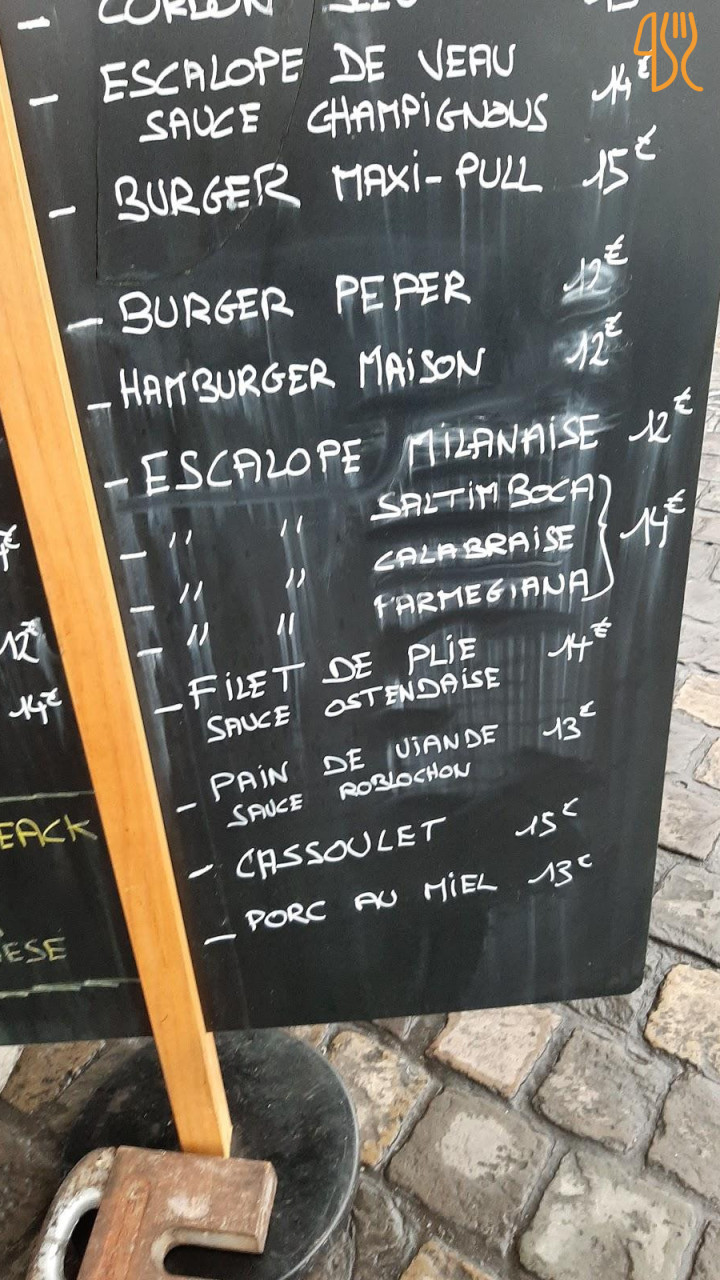 - CORDON
- ESCALOPE DE VEAU 14€
SAUCE CHAMPIGNONS
- BURGER MAXI-PULL 15€
- BURGER PEPER 12€
- HAMBURGER MAISON 12€
- ESCALOPE MILANAISE 12€
- " " SALTIMBOCA
- " " CALABRAISE 14€
- " " PARMEGIANA
- FILET DE PLIE 14€
SAUCE OSTENDAISE
- PAIN DE VIANDE 13€
SAUCE ROBLOCHON
- CASSOULET 15€
- PORC AU MIEL 13€
12€
14€
EACK
ESE